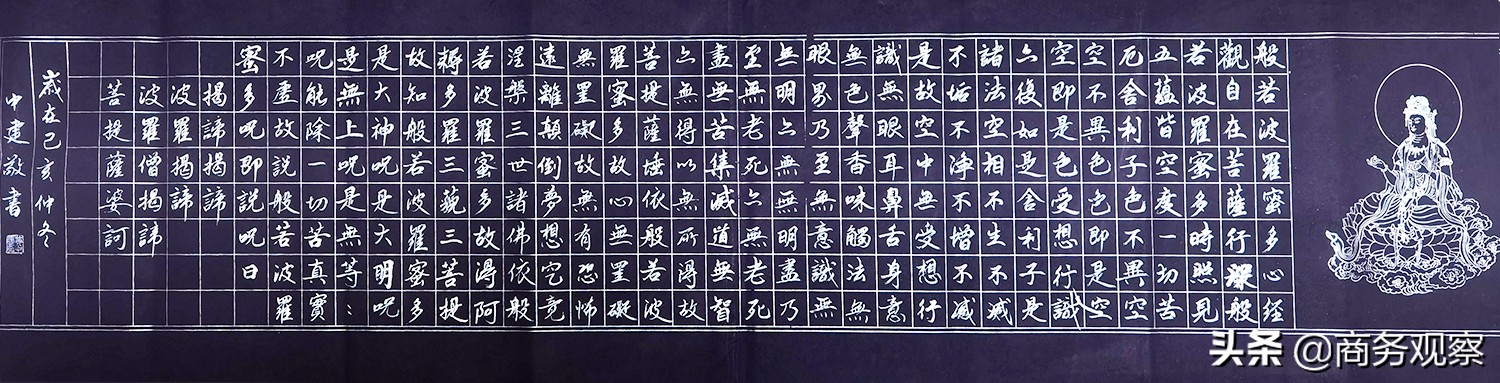 般若波羅蜜多心經
觀自在菩薩行深般
若波羅蜜多時照見
五蘊皆空度一切苦
厄舍利子色不異空
空不異色色即是空
空即是色受想行識
亦復如是舍利子是
諸法空相不生不滅
不垢不淨不增不減
是故空中無受想行
識無眼耳鼻舌身意
無色聲香味觸法無
眼界乃至無意識無
無明亦無無明盡乃
至無老死亦無老死
盡無苦集滅道無智
亦無得以無所得故
菩提薩埵依般若波
羅蜜多故心無罣礙
無罣礙故無有恐怖
遠離顛倒夢想究竟
涅槃三世諸佛依般
若波羅蜜多故得阿
耨多羅三藐三菩提
故知般若波羅蜜多
是大神呪是大明呪
是無上呪是無等：
呪能除一切苦真實
不虛故說般若波羅
蜜多呪即說呪曰
揭諦揭諦
波羅揭諦
波羅僧揭諦
菩提薩婆訶
歲在己亥仲冬
中建敬書
头条 @商务观察